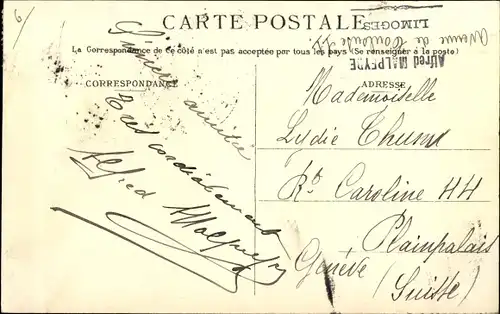 CARTE POSTALE
La Correspondance de ce côté n'est pas acceptée par tous les pays (Se renseigner à la poste)
CORRESPONDANCE
Sincère amitié
Très cordialement
Alfred Malpeyre
Alfred MALPEYRE
Avenue de Toulouse
LIMOGES
ADRESSE
Mademoiselle
Lydie
Caroline 44
Plainpalais
Genève (Suisse)